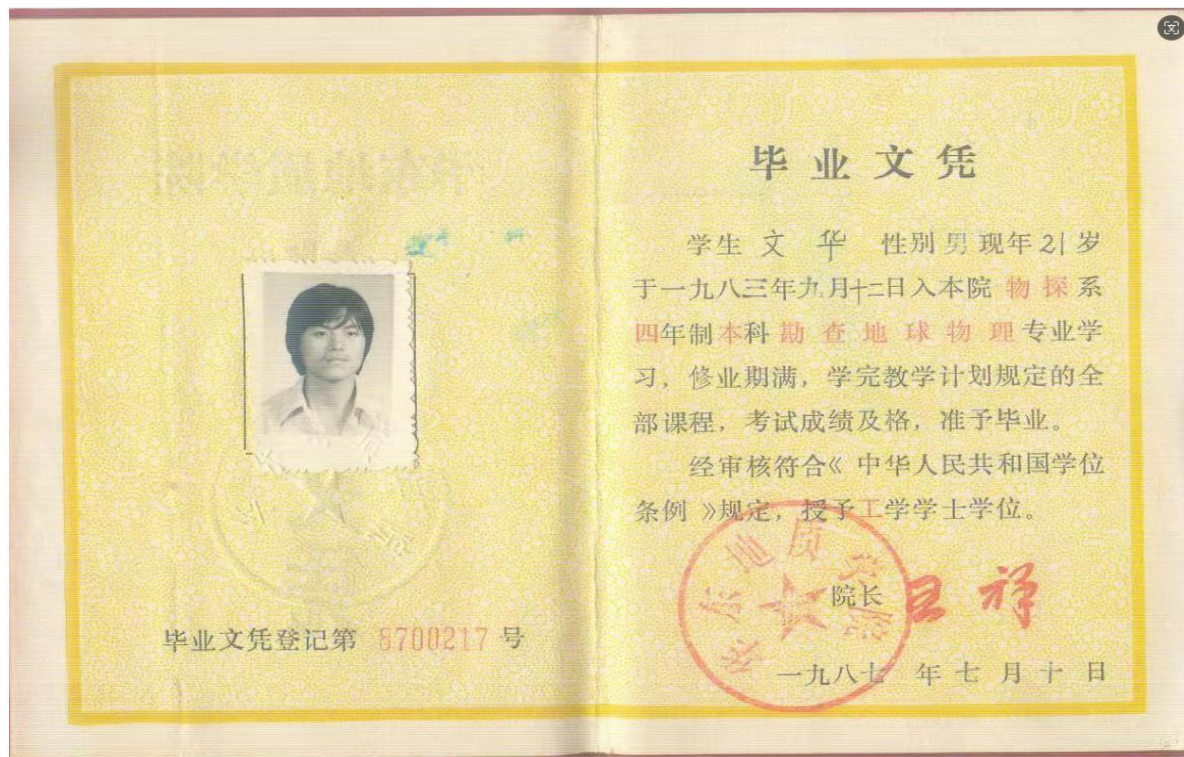 毕业文凭登记第 8700217 号
毕业文凭
学生 文 华 性别 男 现年 21 岁
于一九八三年九月十二日入本院 物探 系
四年制本科勘查地球物理专业学
习，修业期满，学完教学计划规定的全
部课程，考试成绩及格，准予毕业。
经审核符合《中华人民共和国学位
条例》规定，授予工学学士学位。
华东地质学院
院长
一九八七 年 七 月 十 日